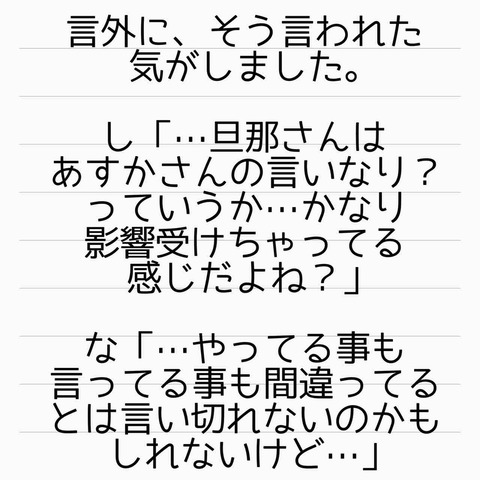 言外に、そう言われた
気がしました。
し「…旦那さんは
あすかさんの言いなり？
っていうか…かなり
影響受けちゃってる
感じだよね？」
な「…やってる事も
言ってる事も間違ってる
とは言い切れないのかも
しれないけど…」